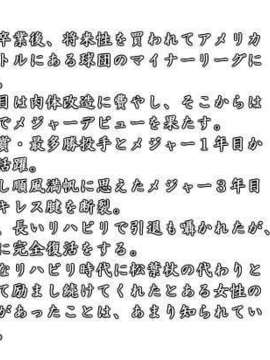 卒業後、将来性を買われてアメリカ
トルにある球団のマイナーリーグに
。
目は肉体改造に費やし、そこからは
でメジャーデビューを果たす。
賞・最多勝投手とメジャー１年目か
活躍。
し順風満帆に思えたメジャー３年目
キレス腱を断裂。
、長いリハビリで引退も囁かれたが、
に完全復活をする。
なリハビリ時代に松葉杖の代わりと
て励まし続けてくれたとある女性の
があったことは、あまり知られてい
。